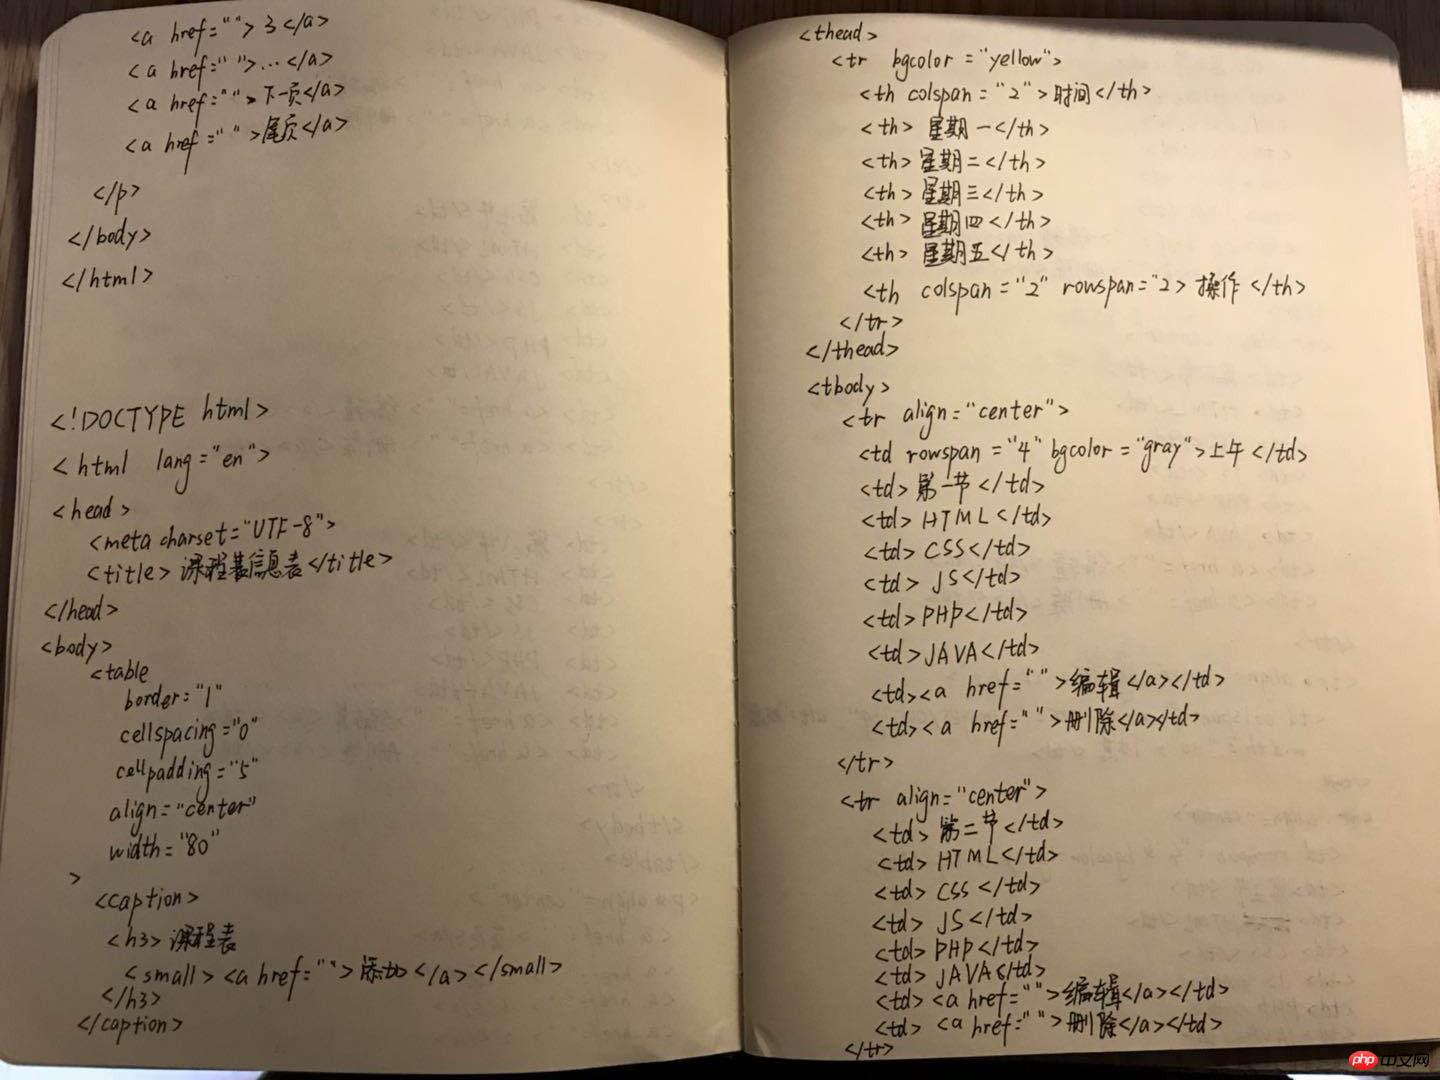 <a href=""> 3 </a>
<a href=" ">...</a>
<a href="">下一页</a>
<a href=" ">尾页</a>
</p>
</body>
</html>
<!DOCTYPE html>
<html lang="en">
<head>
<meta charset="UTF-8">
<title>课程信息表</title>
</head>
<body>
<table
border="1"
cellspacing="0"
cellpadding="5"
align="center"
width="80"
>
<caption>
<h3>课程表
<small><a href="">添加</a></small>
</h3>
</caption>
<thead>
<tr bgcolor="yellow">
<th colspan="2">时间</th>
<th>星期一</th>
<th>星期二</th>
<th>星期三</th>
<th>星期四</th>
<th>星期五</th>
<th colspan="2" rowspan="2>操作</th>
</tr>
</thead>
<tbody>
<tr align="center">
<td rowspan="4" bgcolor="gray">上午</td>
<td>第一节</td>
<td>HTML</td>
<td>CSS</td>
<td>JS</td>
<td>PHP</td>
<td>JAVA</td>
<td><a href="">编辑</a></td>
<td><a href="">删除</a></td>
</tr>
<tr align="center">
<td>第二节</td>
<td>HTML</td>
<td>CSS</td>
<td>JS</td>
<td>PHP</td>
<td>JAVA</td>
<td><a href="">编辑</a></td>
<td><a href="">删除</a></td>
</tr>
php中文网